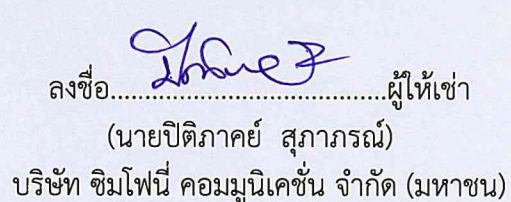 ลงชื่อ................................ผู้ให้เช่า
(นายปิติภาคย์ สุภาภรณ์)
บริษัท ซิมโฟนี่ คอมมูนิเคชั่น จำกัด (มหาชน)